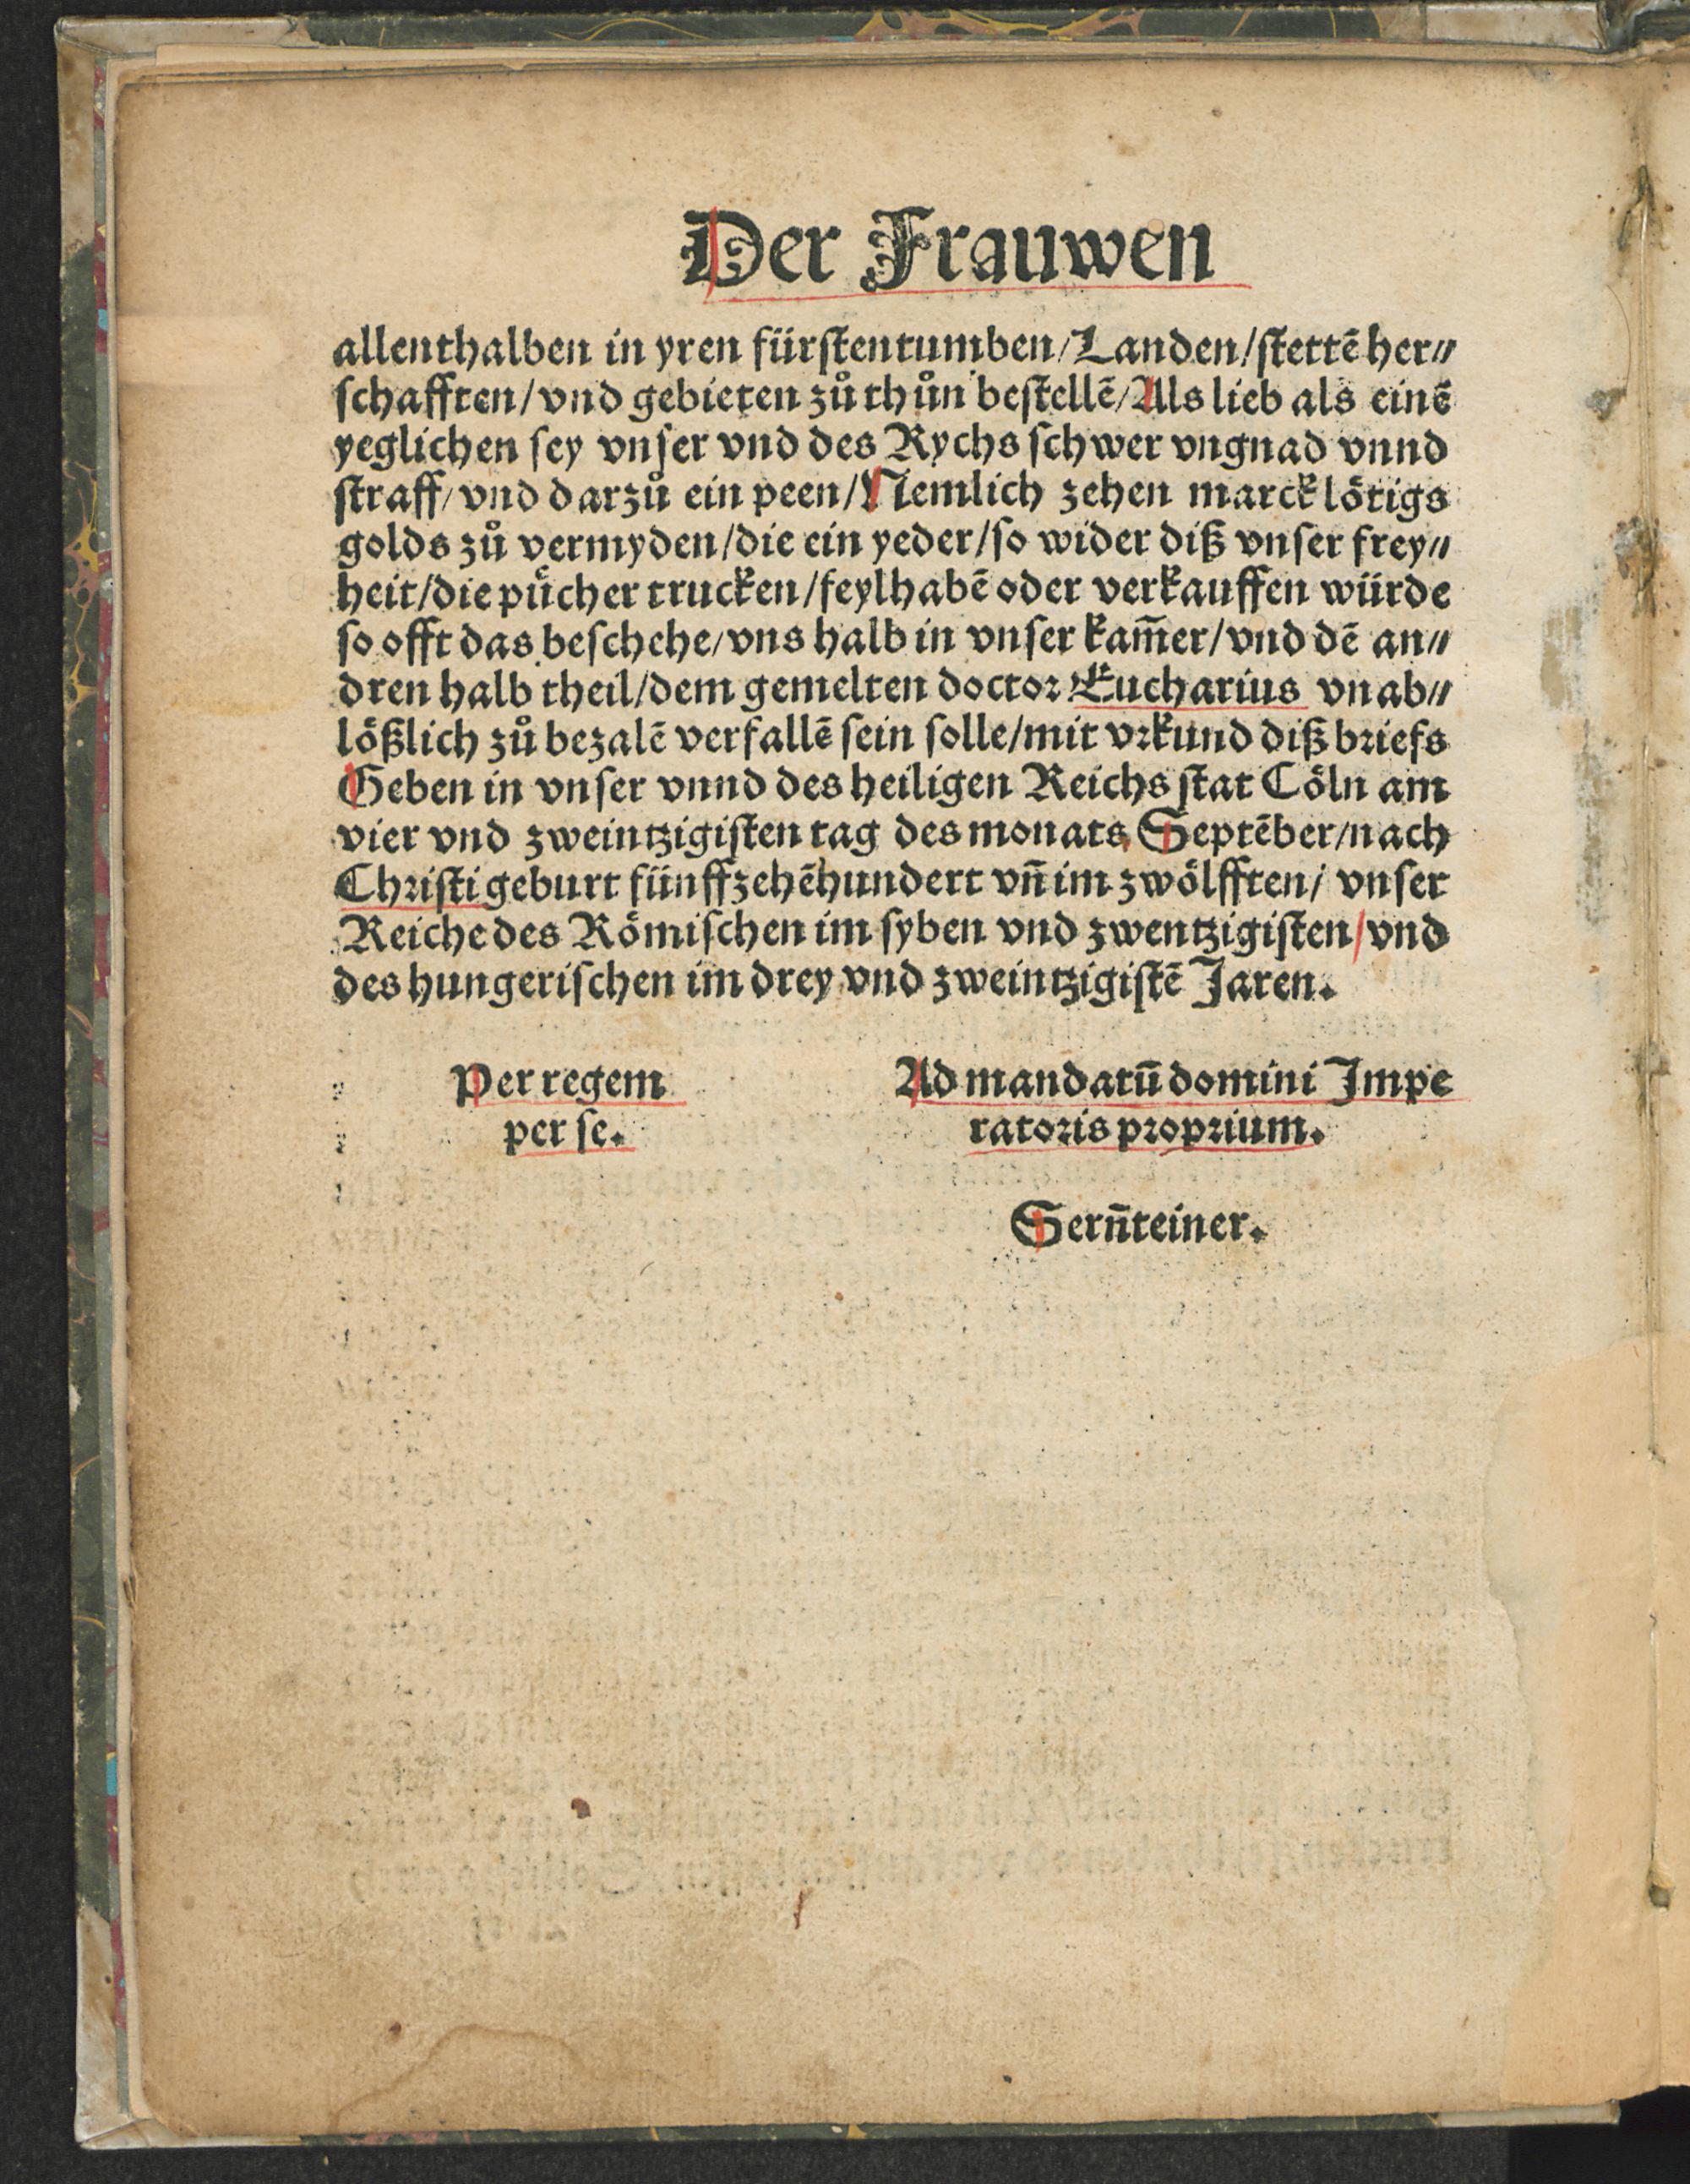 Der Frauwen
allenthalben in yren fürſtentumben/Landen/ſtettē her⸗
ſchafften/vnd gebieten zů thůn beſtellē/Als lieb als einē
yeglichen ſey vnſer vnd des Rychs ſchwer vngnad vnnd
ſtraff/vnd darzů ein peen/Nemlich zehen marck lötigs
golds zů vermyden/die ein yeder/ſo wider diß vnſer frey⸗
heit/die pücher trucken/feylhabē oder verkauffen würde
ſo offt das beſchche/vns halb in vnſer kam̄er/vnd dē an⸗
dren halb theil/dem gemelten doctor Eucharius vnab⸗
lößlich zů bezalē verfallē ſein ſolle/mit vrkund diß briefs
Geben in vnſer vnnd des heiligen Reichs ſtat Cöln am
vier vnd zweintzigiſten tag des monats Septēber/nach
Chriſti geburt fünffzehēhundert vn̄ im zwölfften/ vnſer
Reiche des Römiſchen im ſyben vnd zwentzigiſten/vnd
des hungeriſchen im drey vnd zweintzigiſtē Jaren.
Per regem
per ſe.
Ad mandatū domini Impe
ratoris proprium.
Sern̄teiner.